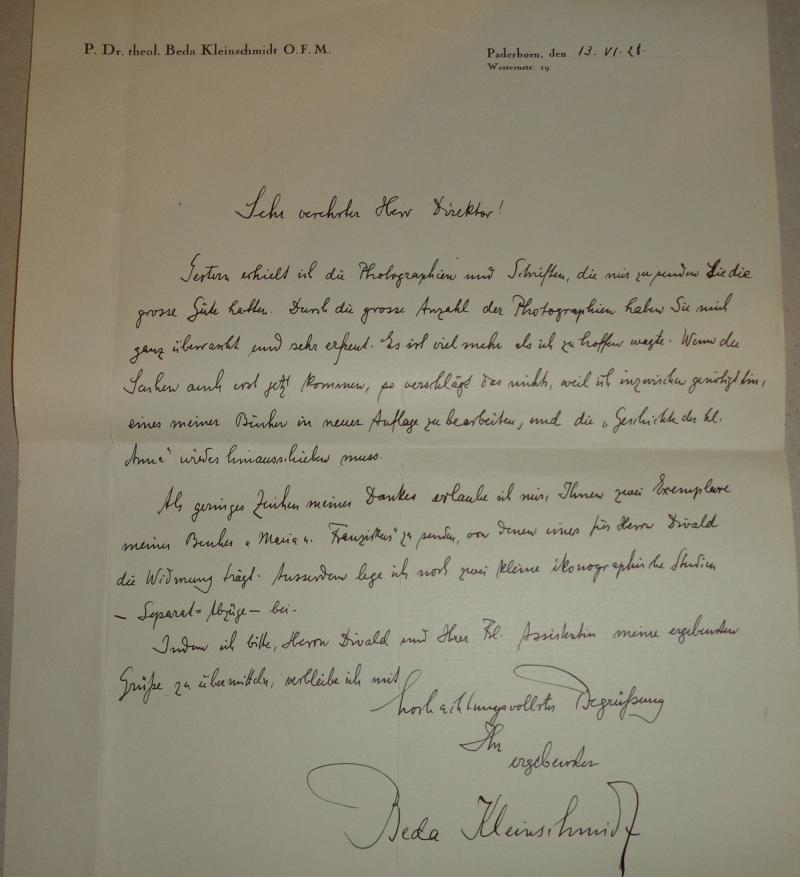 P. Dr. theol. Beda Kleinschmidt O.F.M.
Paderborn, den 13. VI. 28.
Westernstr. 19
Sehr verehrter Herr Direktor!
Gestern erhielt ich die Photographien und Schriften, die mir zu senden Sie die
grosse Güte hatten. Durch die grosse Anzahl der Photographien haben Sie mich
ganz überrascht und sehr erfreut. Es ist viel mehr als ich zu hoffen wagte. Wenn die
Sachen auch erst jetzt kommen, so verschlägt das nichts, weil ich inzwischen genötigt bin,
eines meiner Bücher in neuer Auflage zu bearbeiten, und die „Geschichte der hl.
Anna" wieder hinausschieben muss.
Als geringes Zeichen meines Dankes erlaube ich mir, Ihnen zwei Exemplare
meines Buches „Maria u. Franziskus" zu senden, von denen eines für Herrn Divald
die Widmung trägt. Ausserdem lege ich noch zwei kleine ikonographische Studien
– Separat=Abzüge – bei.
Indem ich bitte, Herrn Divald und Ihrer Frl. Assistentin meine ergebensten
Grüße zu übermitteln, verbleibe ich mit
hochachtungsvollster Begrüßung
Ihr
ergebenster
Beda Kleinschmidt